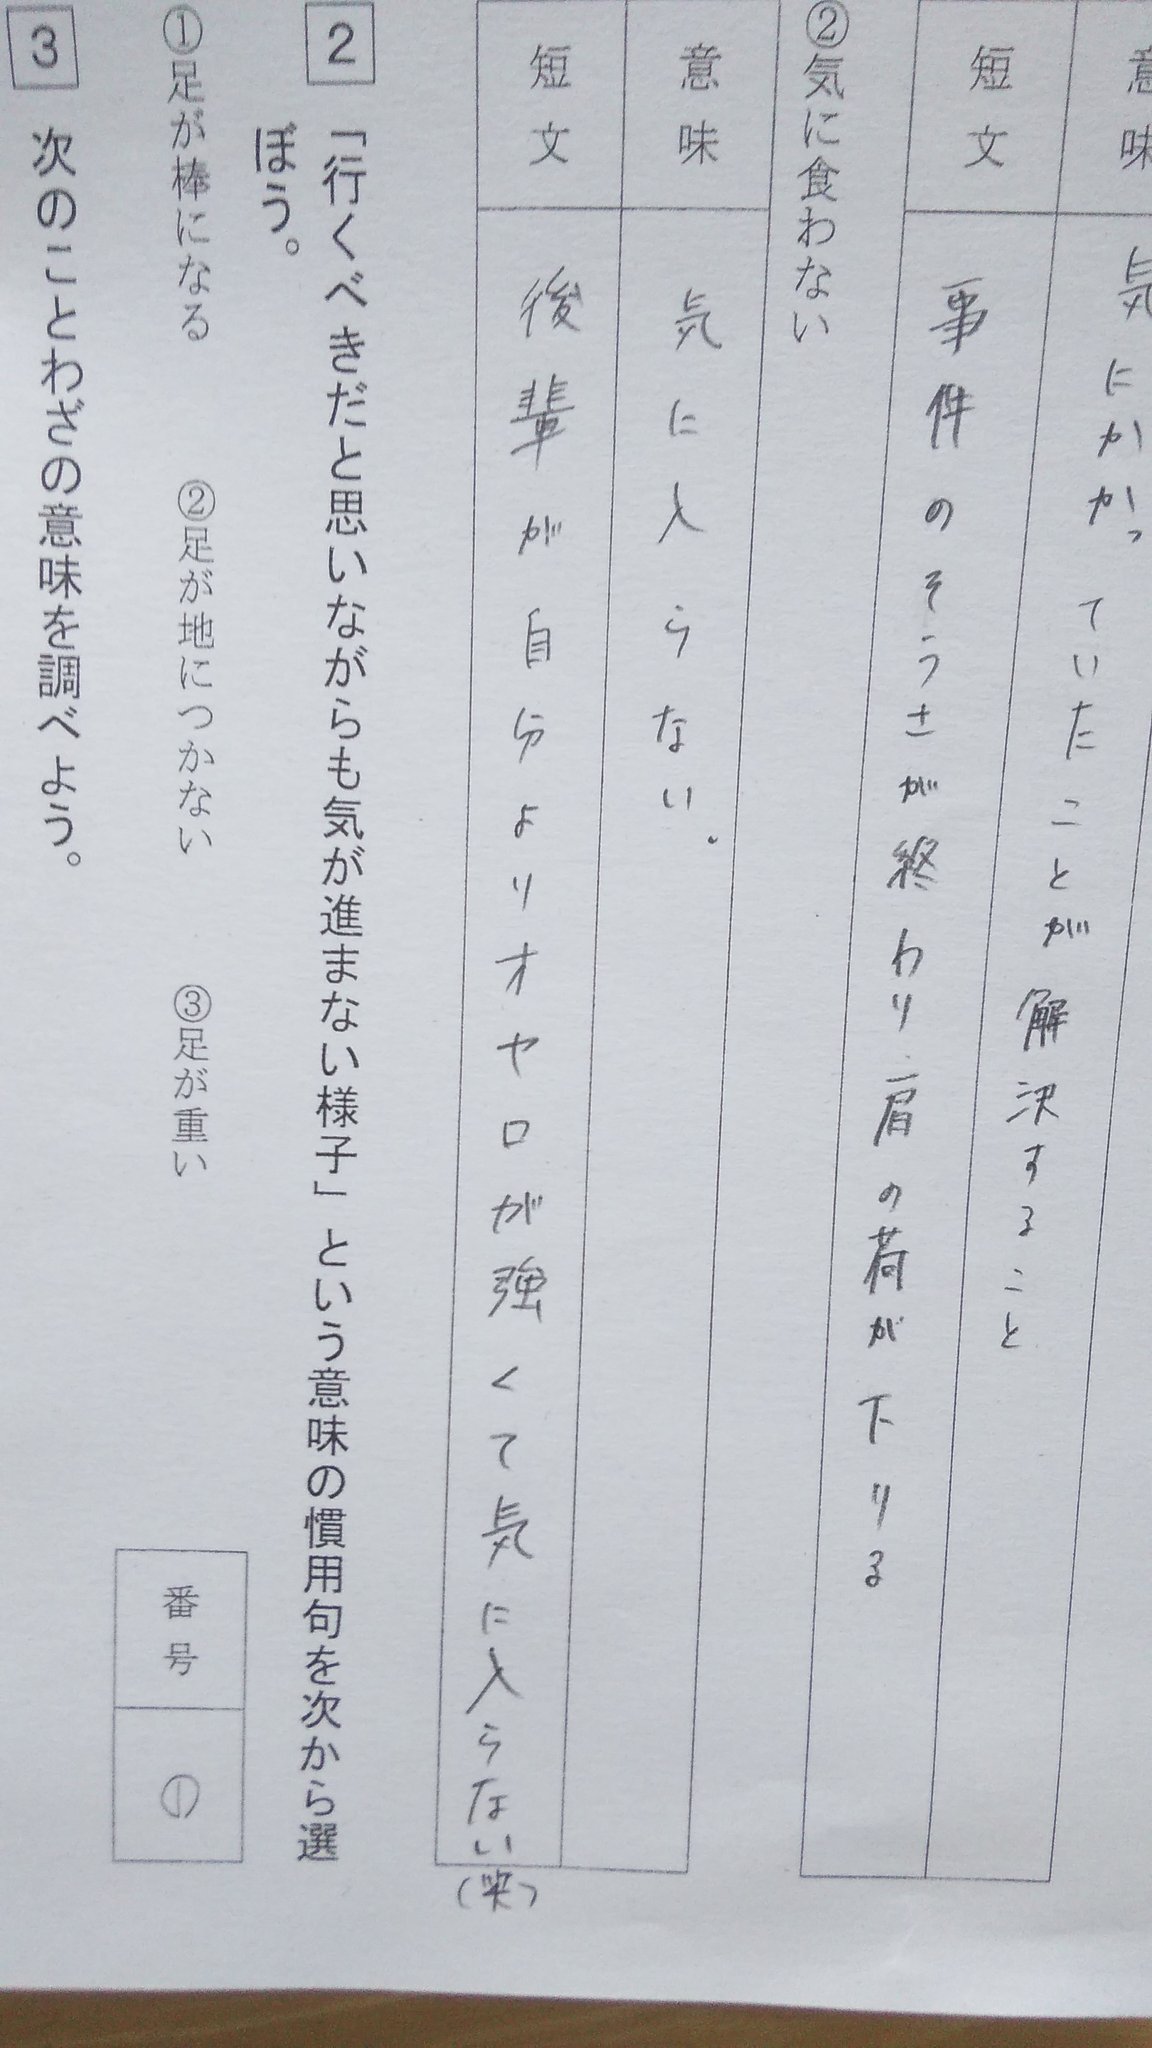 意味
気にかかっていたことが解決すること
短文
事件のそうさが終わり肩の荷が下りる
②気に食わない
意味
気に入らない.
短文
後輩が自分よりオヤロが強くて気に入らない(笑)
2 「行くべきだと思いながらも気が進まない様子」という意味の慣用句を次から選
ぼう。
①足が棒になる ②足が地につかない ③足が重い
番号
①
3 次のことわざの意味を調べよう。